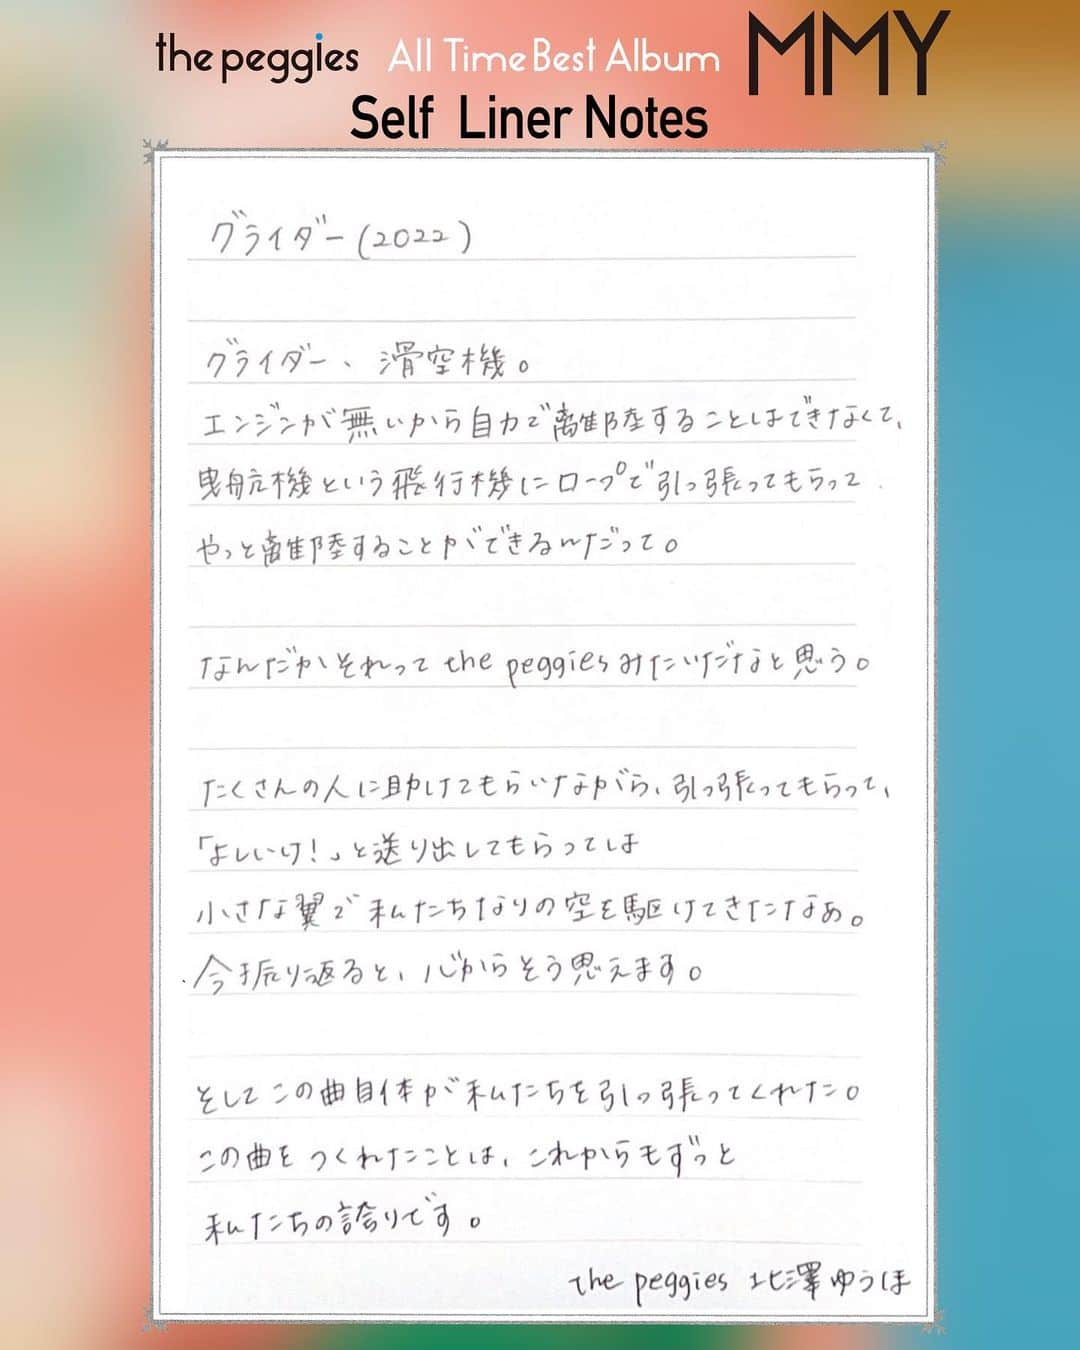 the peggies All Time Best Album MMY
Self Liner Notes
グライダー(2022)
グライダー、滑空機。
エンジンが無いから自力で離陸することはできなくて、
曳航機という飛行機にロープで引っ張ってもらって
やっと離陸することができるんだって。
なんだかそれって the peggies みたいだなと思う。
たくさんの人に助けてもらいながら、引っ張ってもらって、
「よしいけ！」と送り出してもらっては
小さな翼で私たちなりの空を駆けてきたなあ。
今振り返ると、心からそう思えます。
そしてこの曲自体が私たちを引っ張ってくれた。
この曲をつくれたことは、これからもずっと
私たちの誇りです。
the peggies 北澤ゆうほ